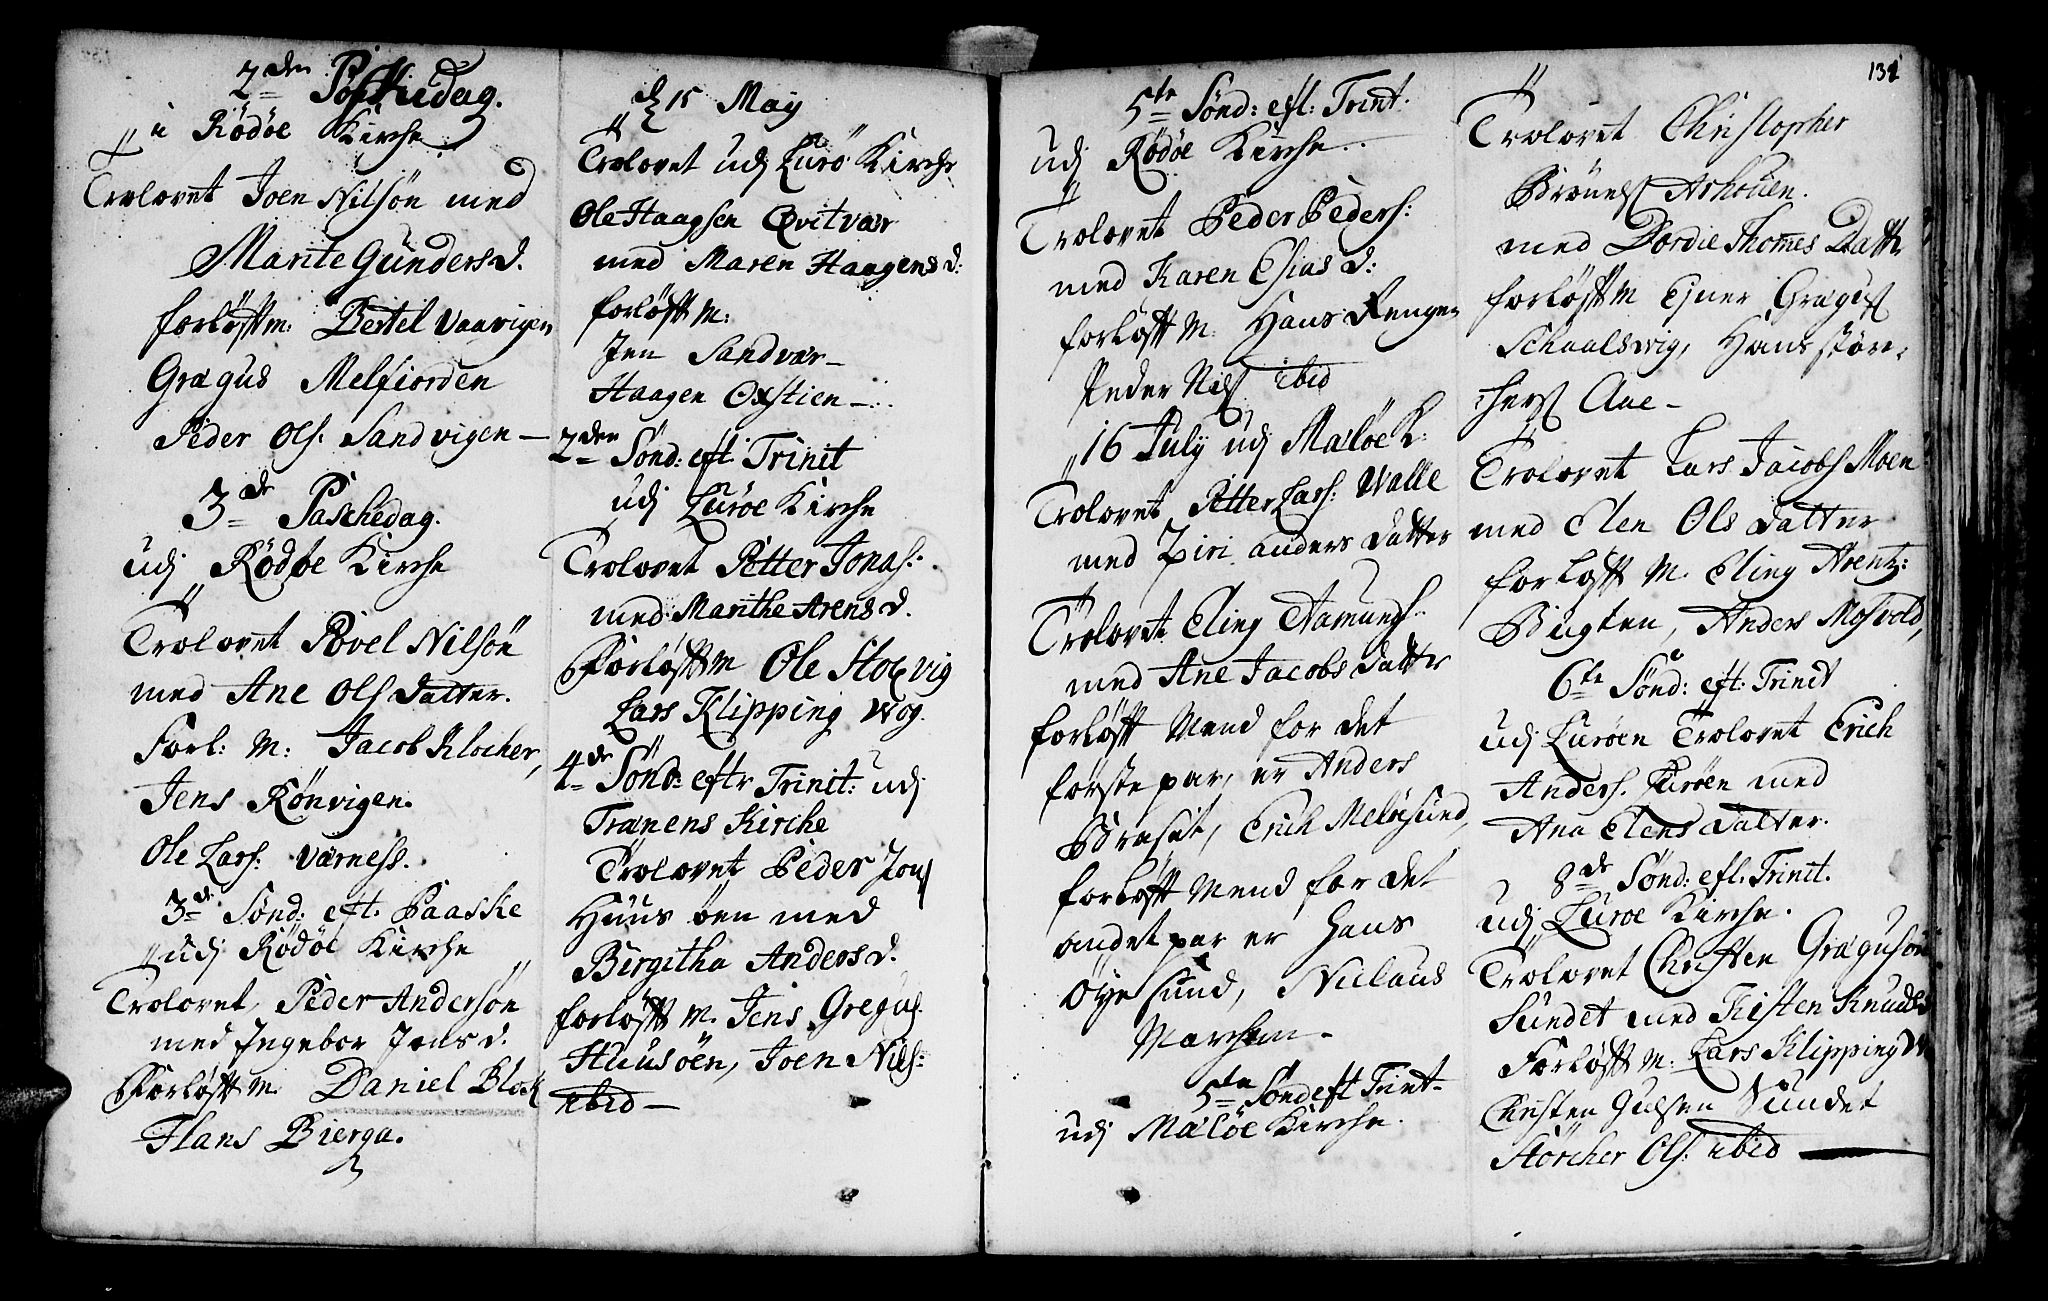 2den Paskedag.
i Rödöe Kirche
Trolovet Joen Nilsön med
Marite Gundersd.
forløfft m: Bertel Vaavigen
Grægus Melfiorden
Peder Ols: Sandvigen —
3de Paschedag.
udj Rödöe Kirche
Trolovet Povel Nilsön
med Ane Ols Datter.
Forl: M: Jacob Klocher,
Jens Rönvigen.
Ole Lars: Værness.
3de Sönd: eft. Paaske
udj Rödöe Kirche
Trolovet Peder Andersön
med Ingebor Jensd.
Forløfft M. Daniel Block
Hans Bierga.
d 15 May
Trolovet udj Lurö Kirche
Ole Haagsen Qvitvær
med Maren Haagensd:
forløfft M:
Jen Sandvær —
Haagen Oxstien —
2den Sönd: eft. Trinit
udj Luröe Kirche
Trolovet Pitter Jonas:
med Marithe Arensd.
Forløfft M Ole Stocvig
Lars Klipping Wog.
4de Sönd: eftr Trinit: udj
Trænens Kirche
Trolovet Peder Jons
Huus öen med
Birgitha Andersd.
forløfft M. Jens Gregus.
Huusöen, Joen Nils:
ibid —
131
5te Sönd: eft: Trint.
udj Rödöe Kirche.
Trolovet Peder Peders:
med Karen Esias d:
forløfft M: Hans Rengen
Peder Nils ibid
16 July udj Melöe K:
Trolovet Petter Lars: Walle
med Ziri anders Datter
Trolovet Eling Aamunds
med Ane Jacobs Datter
forløfft Mend for det
første par, er Anders
Braset, Erich Melösund,
forløfft Mend for det
andet par er Hans
Öyesund, Niclaus
Marchem —
5te Sönd eft Trint —
udj Mælöe Kirche.
Trolovet Christopher
Brönels Arhouen.
med Dordie Thomes Datt
forløfft M Ejner Grægus
Schaalswig, Hans störc
hers Aae —
Trolovet Lars Jacobs Moen
med Elen Ols Datter
forløfft M. Eling Arentz:
Bugten, Anders Mosvold,
6te Sönd: eft. Trinit
udj Luröen Trolovet Erich
Anders. Luröen med
Ana Elens Datter.
8de Sönd: eft. Trinit.
udj Luröe Kirche.
Trolovet Christen Grægusön
Sundet med Kisten Knuds
Forløfft M: Lars Klipping W
Christen Gulsen Sundet
Störcher Ols: ibid —